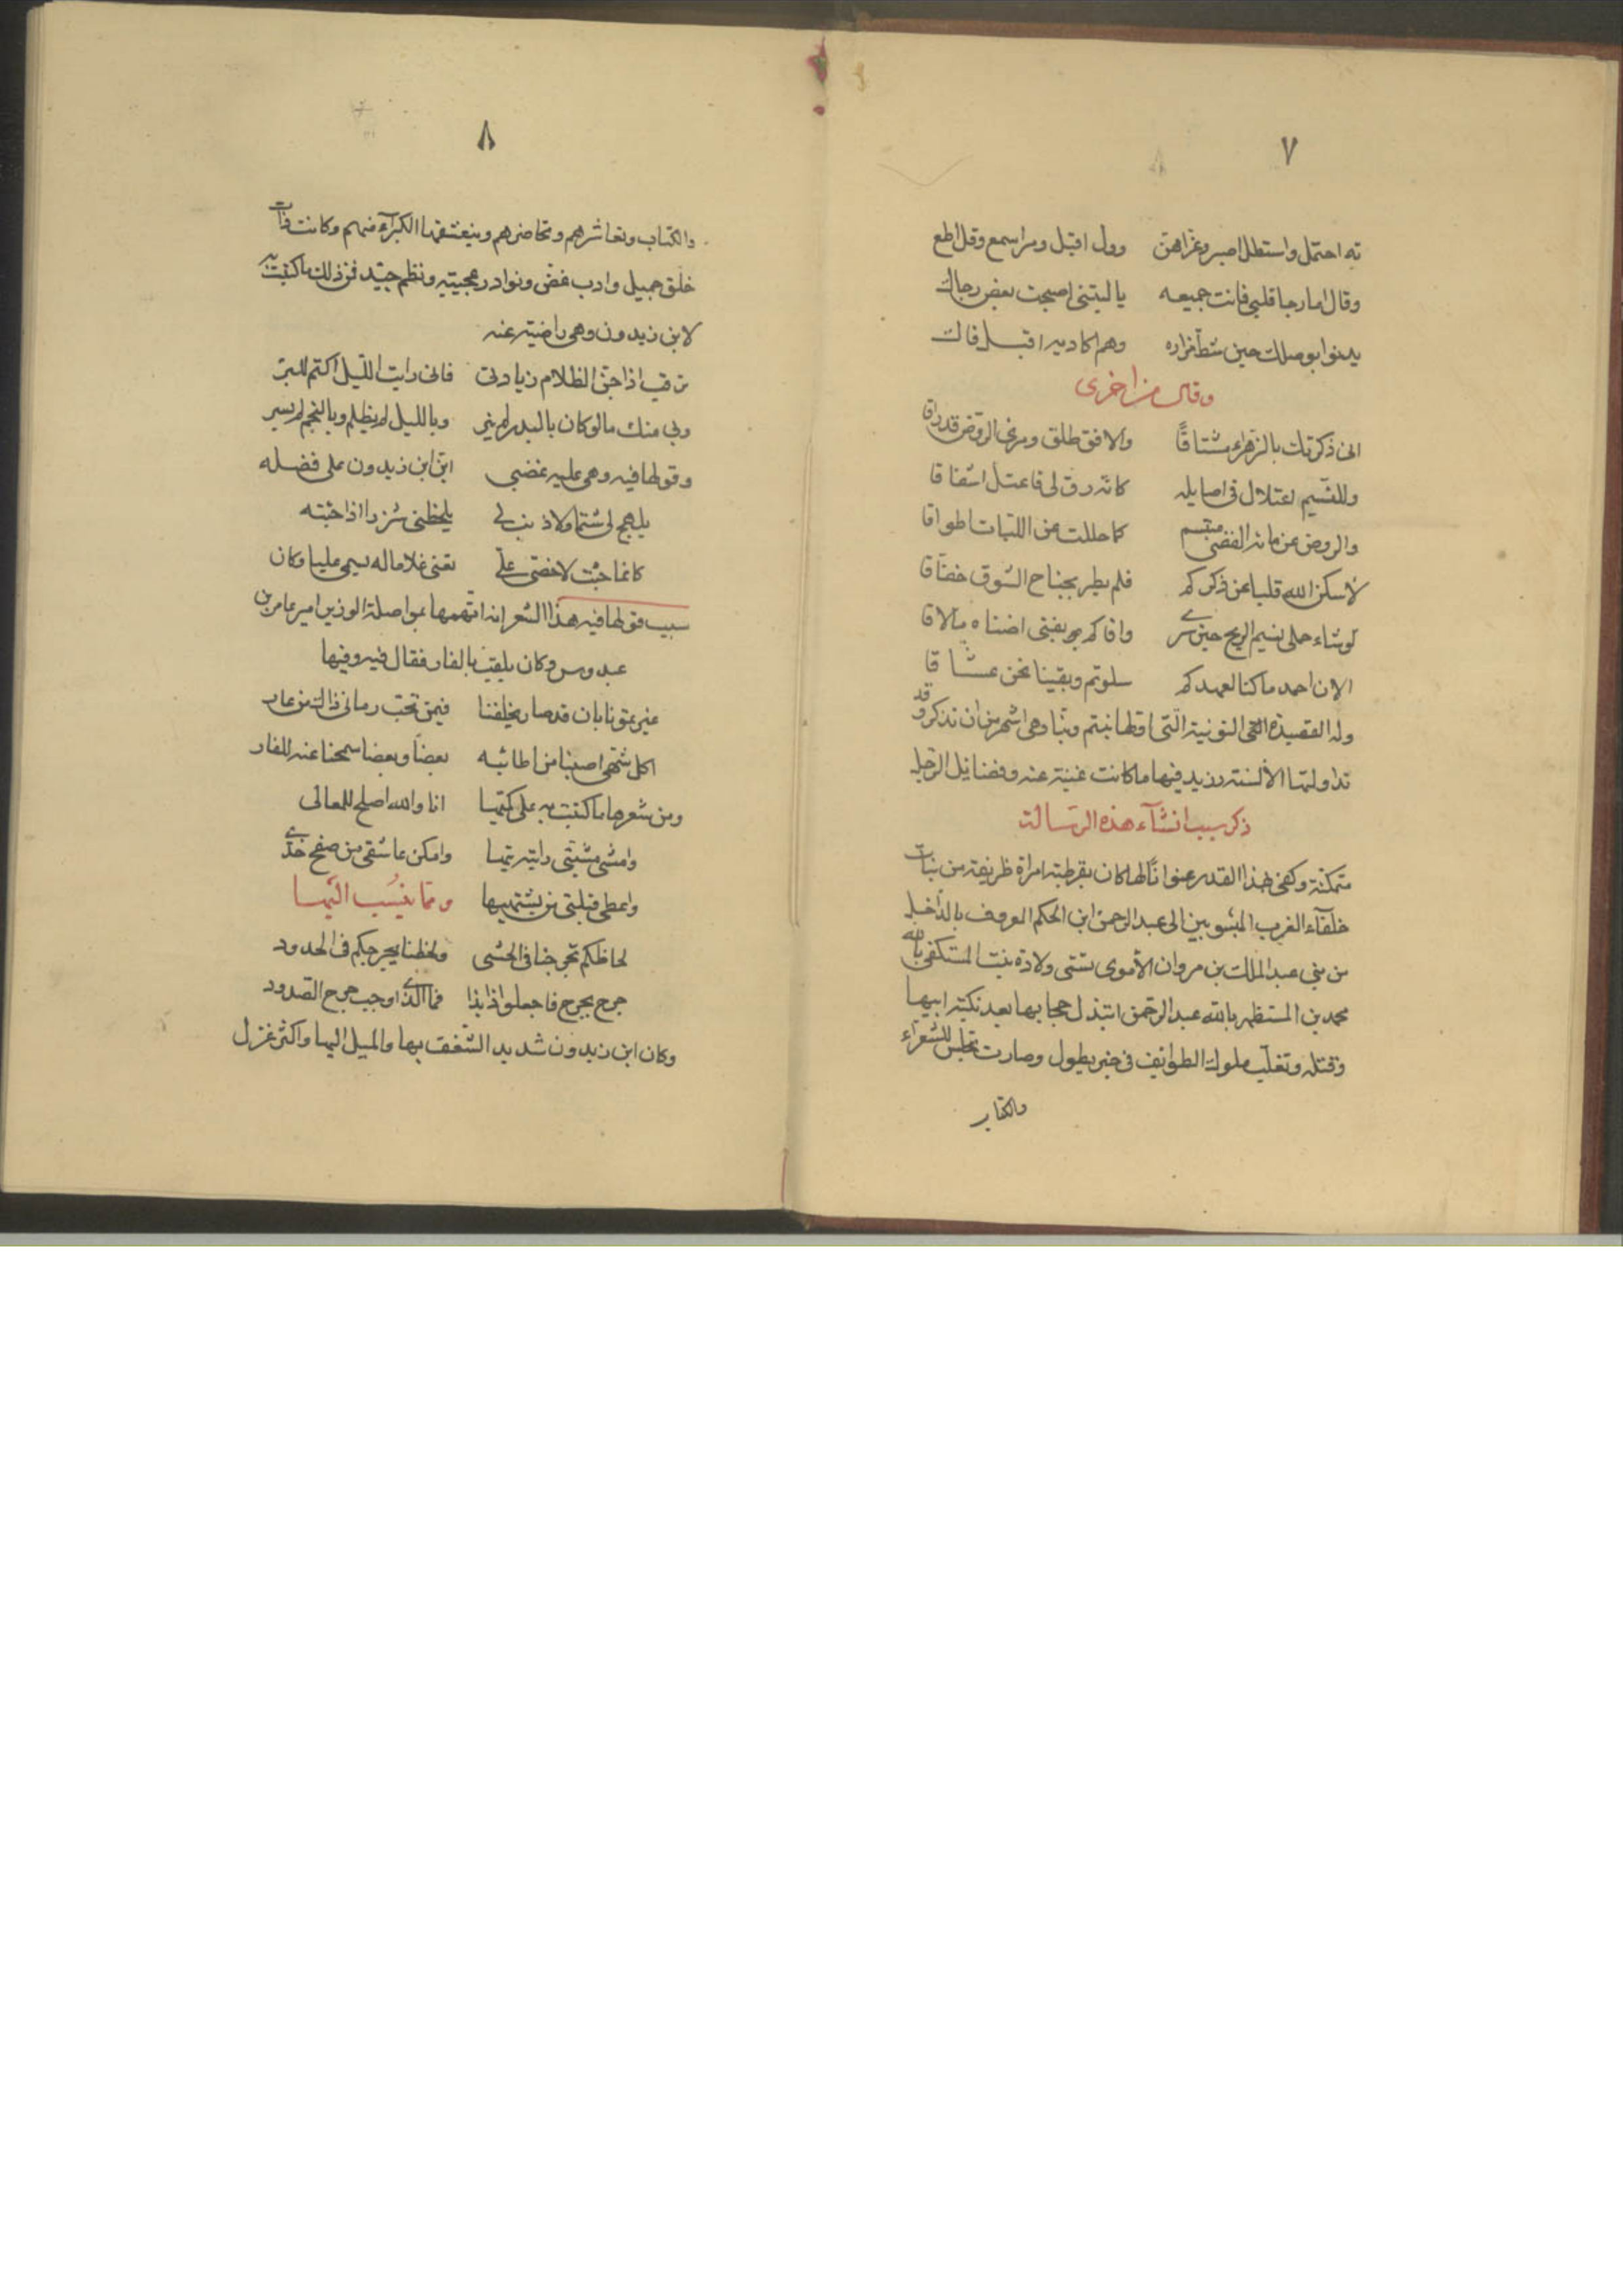 ٧
ته احتمل واستطل اصبر وعز اهن وول اقبل ومر اسمع وقل اطع
وقال اما رجا قلبي فانت جميعه يا ليتني اصبحت بعض رجاك
يدنوا بوصلك حين شط مزاره وهم اكاد به اقبل فاك
وقال من اخرى
انى ذكرتك بالزهراء مشتاقا والافق طلق ومرئى الروض قد راقا
وللنسيم اعتلال فى اصايله كانه رق لى فاعتل اشفاقا
والروض عن مائه الفضى مبتسم كما حللت عن اللبات اطواقا
لا سكن الله قلبا عن ذكركم فلم يطر بجناح الشوق خفاقا
لو شاء حملى نسيم الريح حين سرى وافاكم بفتى اضناه ما لاقا
الان احمد ما كنا لعهدكم سلوتم وبقينا نحن عشاقا
وله القصيدة النونية التى اولها بنتم وبنا وهى اشهر من ان تذكر وقد
تداولتها الألسنة وزيد فيها ما كانت غنية عنه وفضايل الرجل
ذكر سبب انشآء هذه الرسالة
متمكنة وكفى بهذا القدر عنوانًا لها كان بقرطبة امراة ظريفة من بنات
خلفآء الغرب المنسوبين الى عبد الرحمن ابن الحكم المعروف بالداخل
من بني عبد الملك بن مروان الأموى تسمى ولادة بنت المستكفى بالله
محمد بن المستظهر بالله عبد الرحمن ابتذل حجابها بعد نكبة ابيها
وقتله وتغلب ملوك الطوايف فى خبر يطول وصارت تجلس للشعراء
والكتاب
٨
والكتاب وتعاشرهم وتحاضرهم ويتعشقها الكبرآء منهم وكانت ذات
خلق جميل وادب غض ونوادر عجيبة ونظم جيد فمن ذلك ما كتبت به
لابن زيدون وهى راضية عنه
ترقب اذا جن الظلام زيارتى فانى رايت الليل اكتم للسر
وبي منك ما لو كان بالبدر لم ينر وبالليل لم يظلم وبالنجم لم يسر
وقولها فيه وهى عليه غضبى ان ابن زيدون على فضله
يلهج لى شتما ولا ذنب لى يلحظنى شزرا اذا جئته
كانما جئت لاخصى على تعنى غلاما له يسمى عليا وكان
سبب قولها فيه هذا الشعر انه اتهمها بمواصلة الوزير امير عامر بن
عبدوس وكان يلقب بالفار فقال فيه وفيها
عيرتمونا بان قد صار يخلفنا فيمن نحب وما فى ذاك من عار
اكل شهى اصبنا من اطائبه بعضًا وبعضا سمحنا عنه للفار
ومن شعرها ما كتبت به على كمها انا والله اصلح للمعالى
وامشى مشيتى واتيه تيها وامكن عاشقى من صفح خدى
واعطى قبلتى من يشتهيها ومما ينسب اليها
لحاظكم تجرحنا فى الحشى ولحظنا يجرحكم فى الخدود
جرح بجرح فاجعلوا ذا بذا فما الذى اوجب جرح الصدود
وكان ابن زيدون شديد الشغف بها والميل اليها واكثر غزل